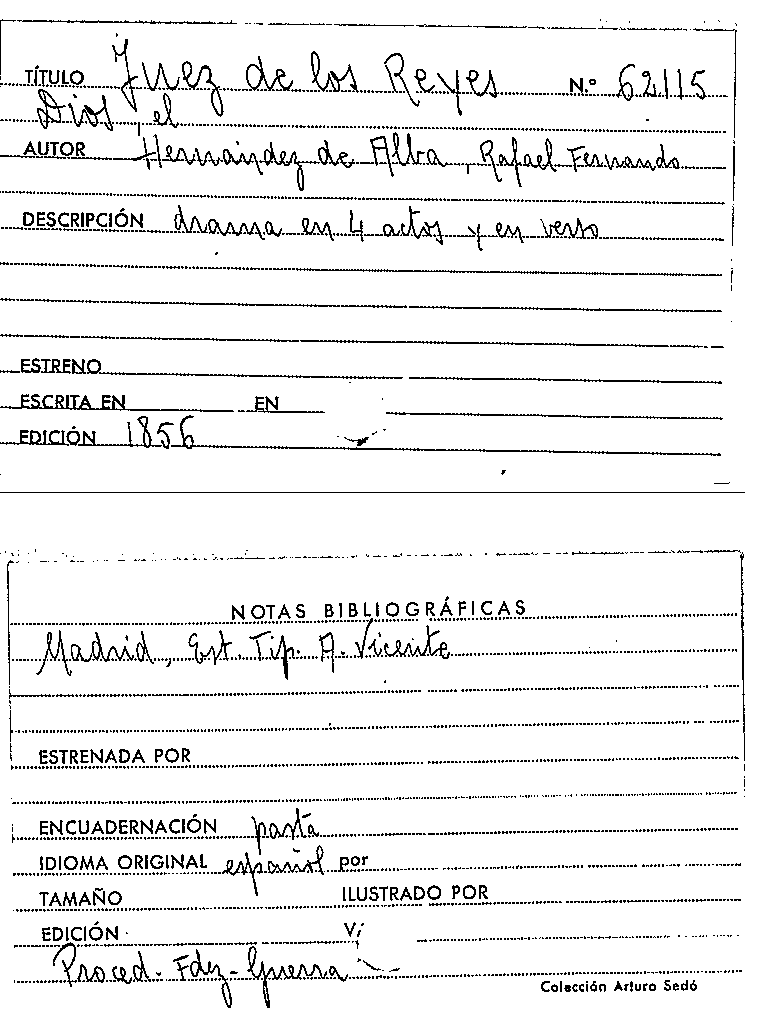 TÍTULO Juez de los Reyes N.º 62115
Dios, el
AUTOR Hernández de Alba, Rafael Fernando
DESCRIPCIÓN drama en 4 actos y en verso
ESTRENO
ESCRITA EN EN
EDICIÓN 1856
NOTAS BIBLIOGRÁFICAS
Madrid, Est. Tip. A. Vicente
ESTRENADA POR
ENCUADERNACIÓN pasta
IDIOMA ORIGINAL español por
TAMAÑO ILUSTRADO POR
EDICIÓN
Proced. Fdez-Guerra
Colección Arturo Sedó